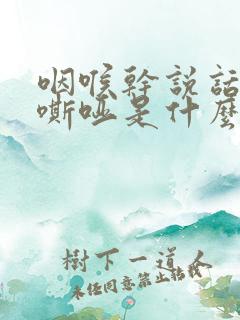 咽喉幹説話
嘶啞是什麽
樹下一道人
未经同意禁止转载